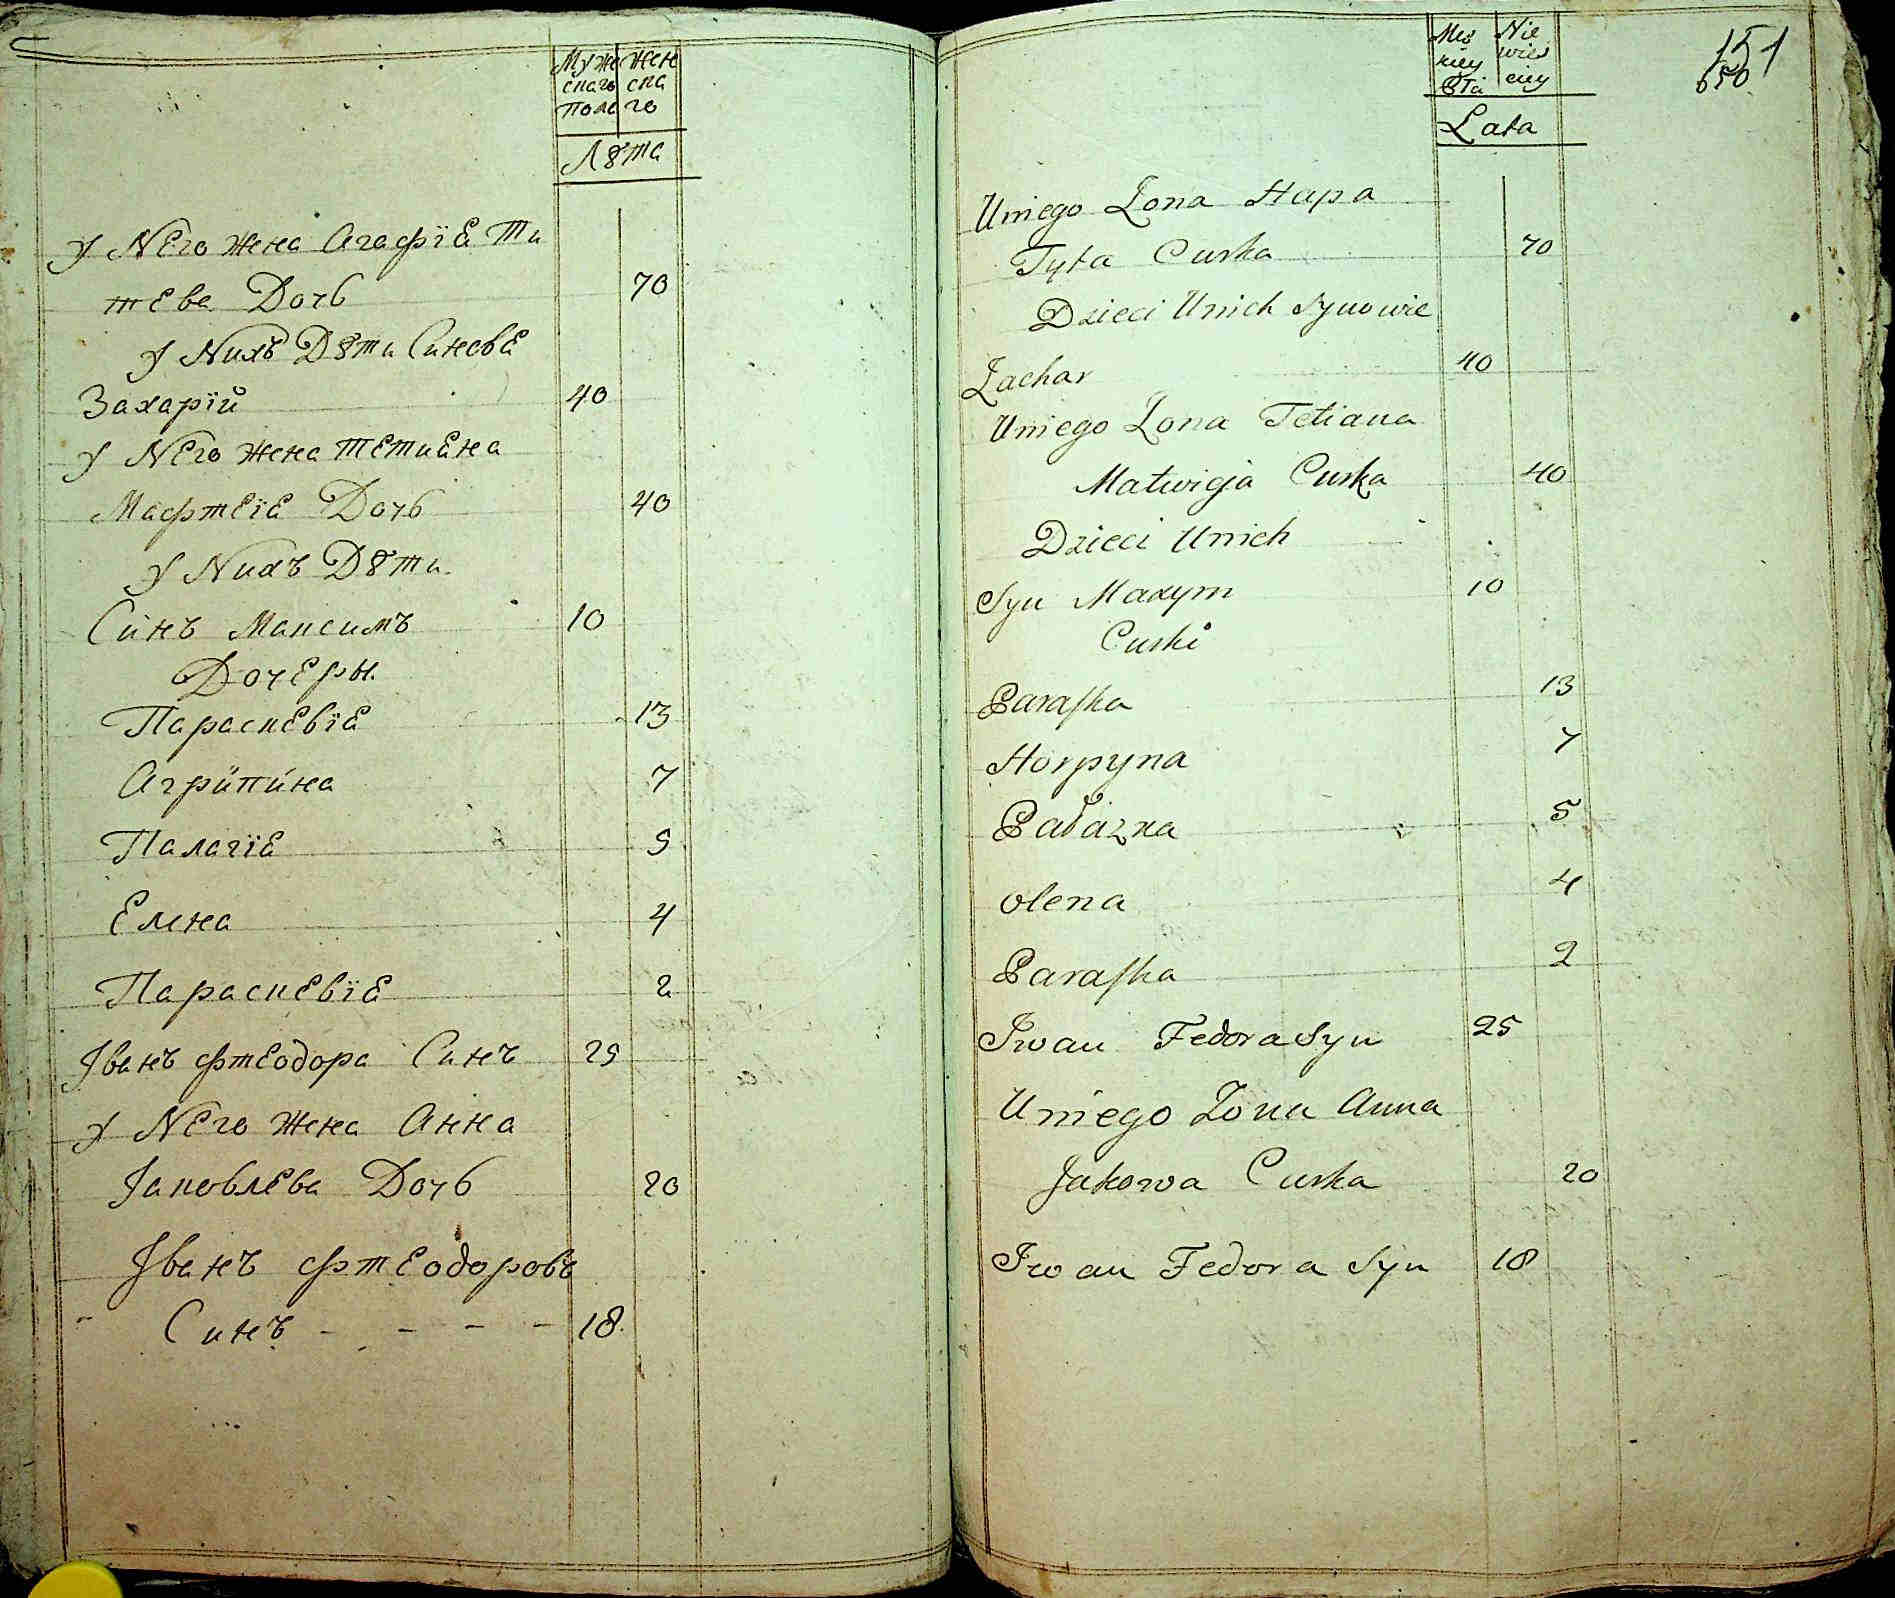 Муже Жен
скаго ска
Пола го
Лѣта
У Него Жена Агафїя Ти
това Дочь 70
У Нихъ Дѣти Синовя
Захарїй 40
У Него Жена Тетияна
Мафтеїя Дочь 40
У Нихъ Дѣти
Синъ Максимъ 10
Дочеры
Параскевїя 13
Агрипина 7
Палагїя 5
Елена 4
Параскевїя 2
Іванъ Фтеодора Синъ 25
У Него Жена Анна
Іаковлева Дочь 20
Іванъ Фтеодоровъ
Синъ - - - - 18
151
650
Męs Nie
kiey wies
Płci ciey
Lata
Uniego Żona Hapa
Tyta Curka 70
Dzieci Unich Synowie
Zachar 40
Uniego Żona Tetiana
Matwieja Curka 40
Dzieci Unich
Syn Maxym 10
Curki
Paraska 13
Horpyna 7
Pałazka 5
Olena 4
Paraska 2
Iwan Fedora Syn 25
Uniego Żona Anna
Jakowa Curka 20
Iwan Fedora Syn 18